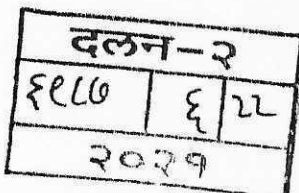 दलन-२
६९८७ ६ २२
२०२१